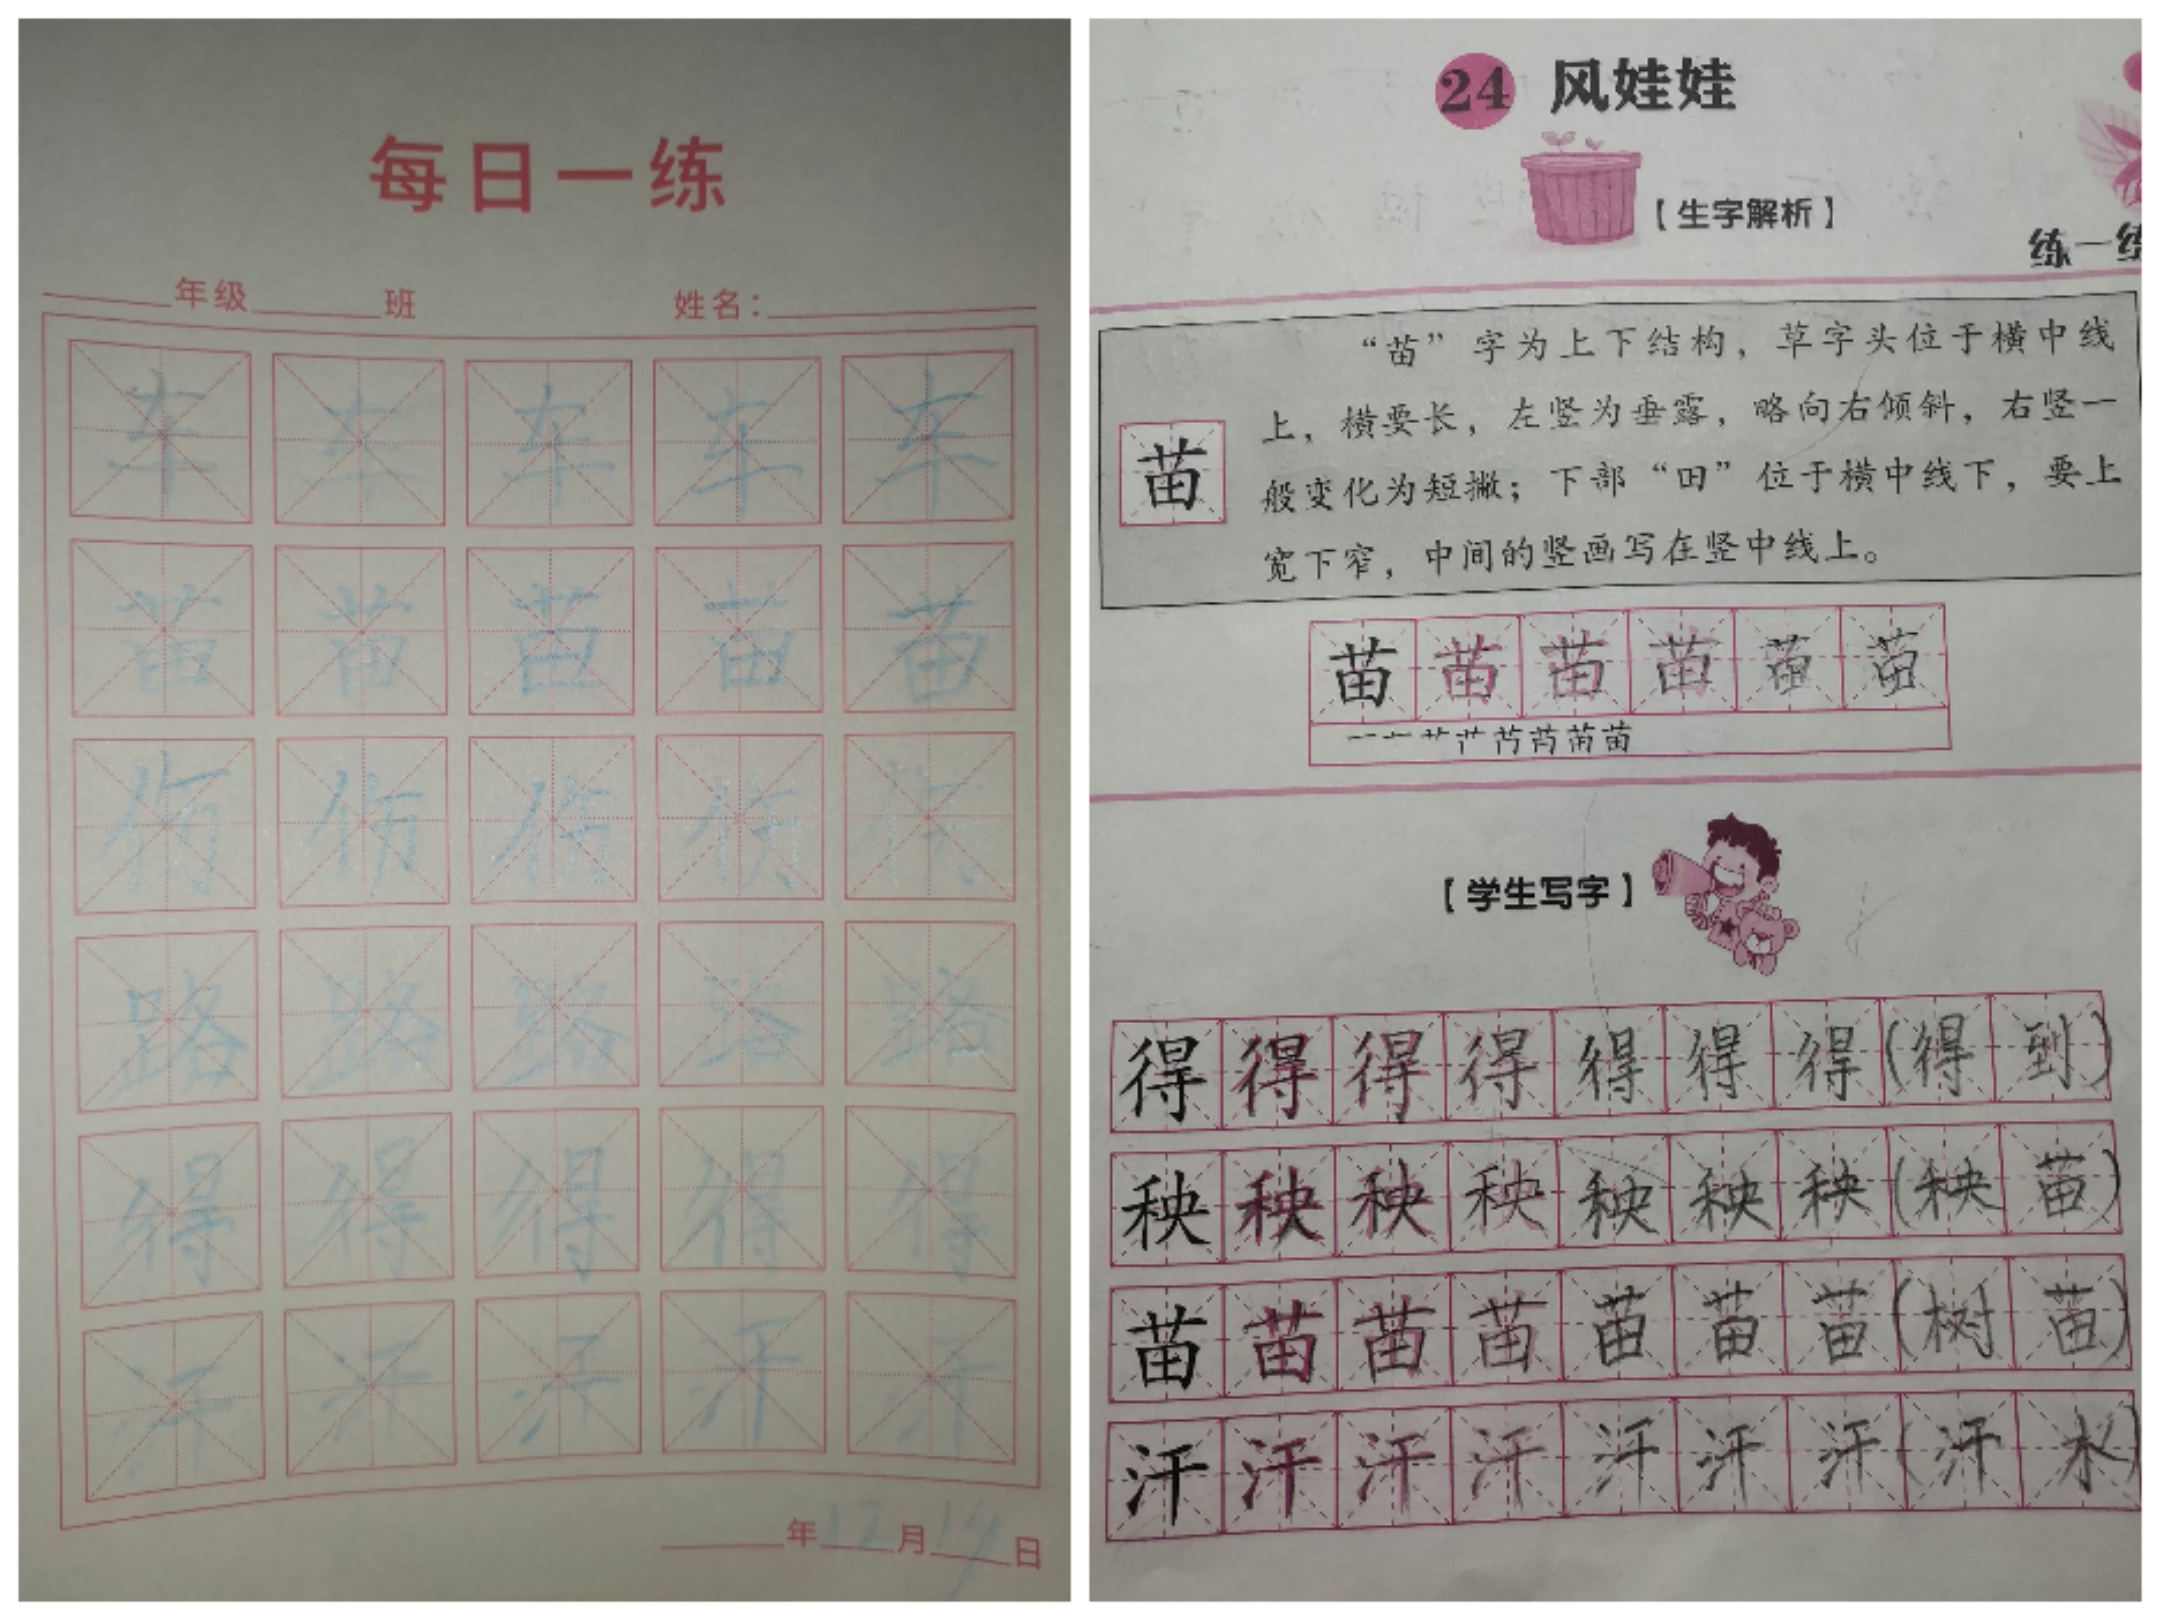 每日一练
年级 班 姓名：
车 车 车 车 车
苗 苗 苗 苗 苗
伤 伤 伤 伤 伤
路 路 路 路 路
得 得 得 得 得
汗 汗 汗 汗 汗
年12月14日
24 风娃娃
【生字解析】
练一练
“苗”字为上下结构，草字头位于横中线
上，横要长，左竖为垂露，略向右倾斜，右竖一
般变化为短撇；下部“田”位于横中线下，要上
宽下窄，中间的竖画写在竖中线上。
苗
苗 苗 苗 苗 苗 苗
【学生写字】
得 得 得 得 得 得 得 (得 到)
秧 秧 秧 秧 秧 秧 秧 (秧 苗)
苗 苗 苗 苗 苗 苗 苗 (树 苗)
汗 汗 汗 汗 汗 汗 汗 (汗 水)